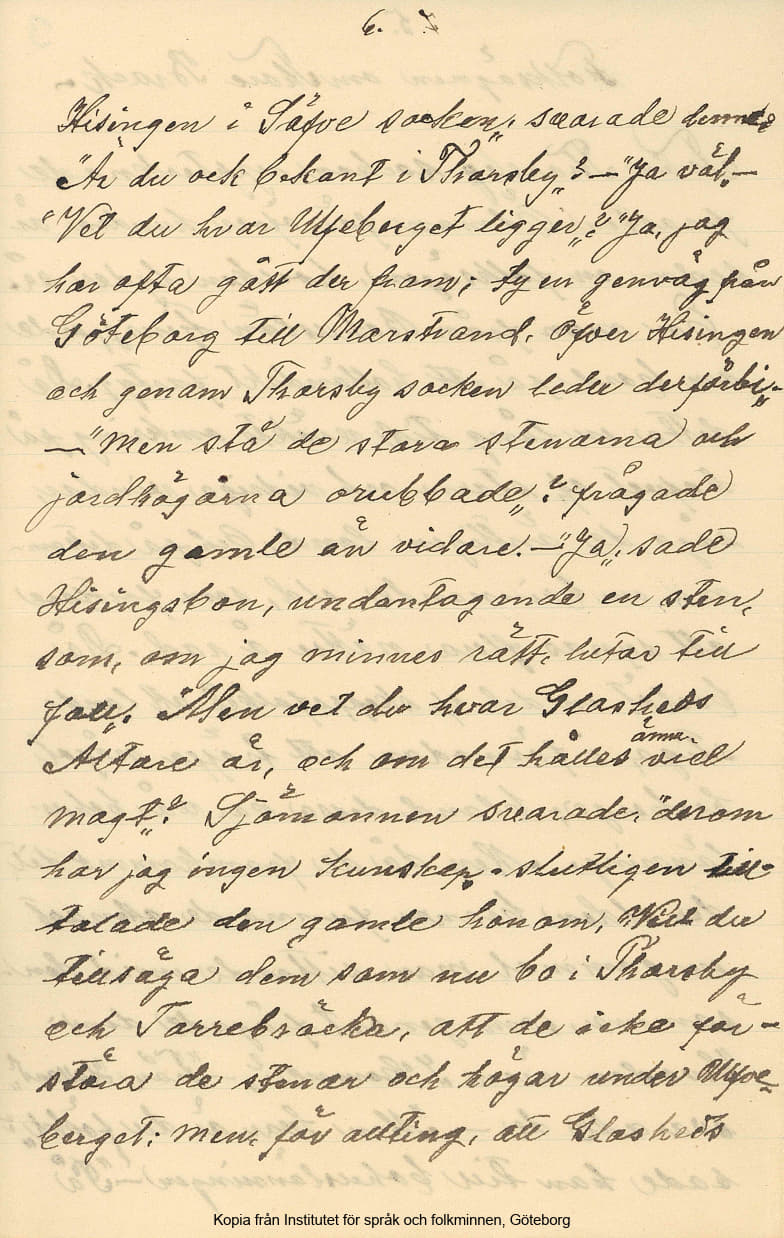 6. 7
Hisingen i Säfve socken", svarade denne.
"Är du ock bekant i Thorsby"? — "Ja väl". —
"Vet du hvar Ulfveberget ligger"? "Ja, jag
har ofta gått der fram; ty en genväg från
Göteborg till Marstrand, öfver Hisingen
och genom Thorsby socken leder derförbi". —
— "Men stå de stora stenarna och
jordhögarna orubbade"? frågade
den gamle än vidare. — "Ja", sade
Hisingsbon, undantagande en sten,
som, om jag minnes rätt, lutar till
fall". "Men vet du hvar Glosheds
Altare är, och om det hålles ännu vid
magt"? Sjömannen svarade, "derom
har jag ingen kunskap. slutligen till-
talade den gamle honom, Vill du
tillsäga dem som nu bo i Thorsby
och Torrebräcka, att de icke för-
störa de stenar och högar under Ulfve-
berget; men, för allting, att Gloshed's
Kopia från Institutet för språk och folkminnen, Göteborg